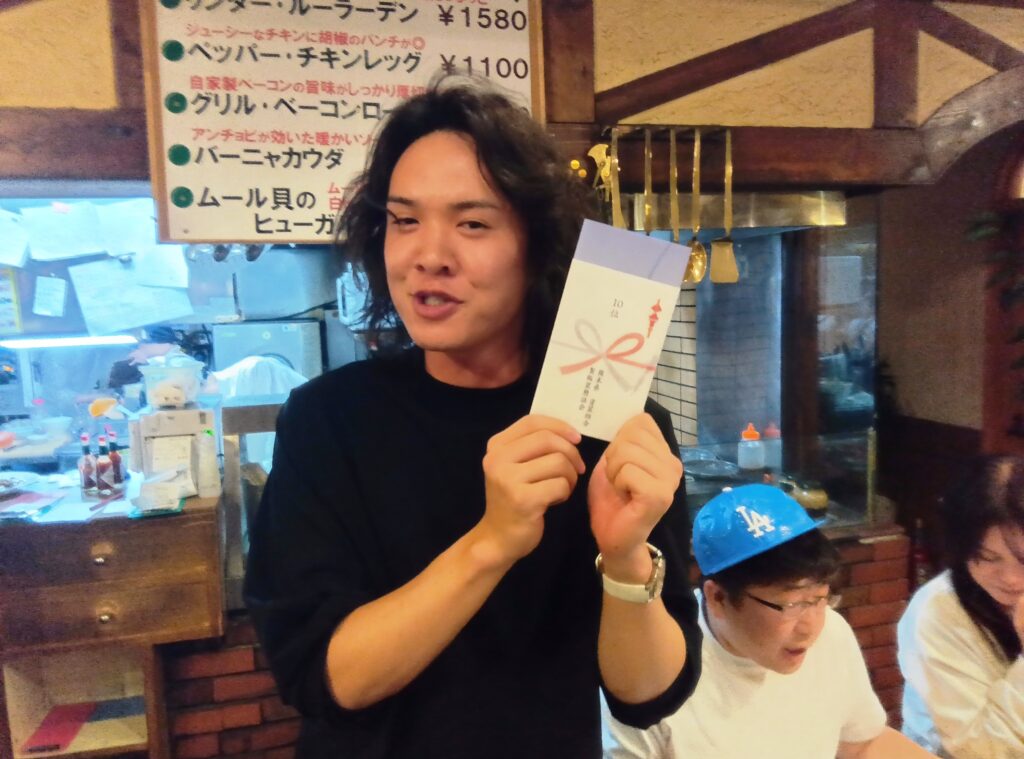 ンダー・ルーラーデン ¥1580
ジューシーなチキンに胡椒のパンチが◎
ペッパー・チキンレッグ ¥1100
自家製ベーコンの旨味がしっかり厚切
グリル・ベーコンロー
アンチョビが効いた暖かいソ
バーニャカウダ
ムール貝の
ム
白
ヒューガ
10位
熊本県
LA